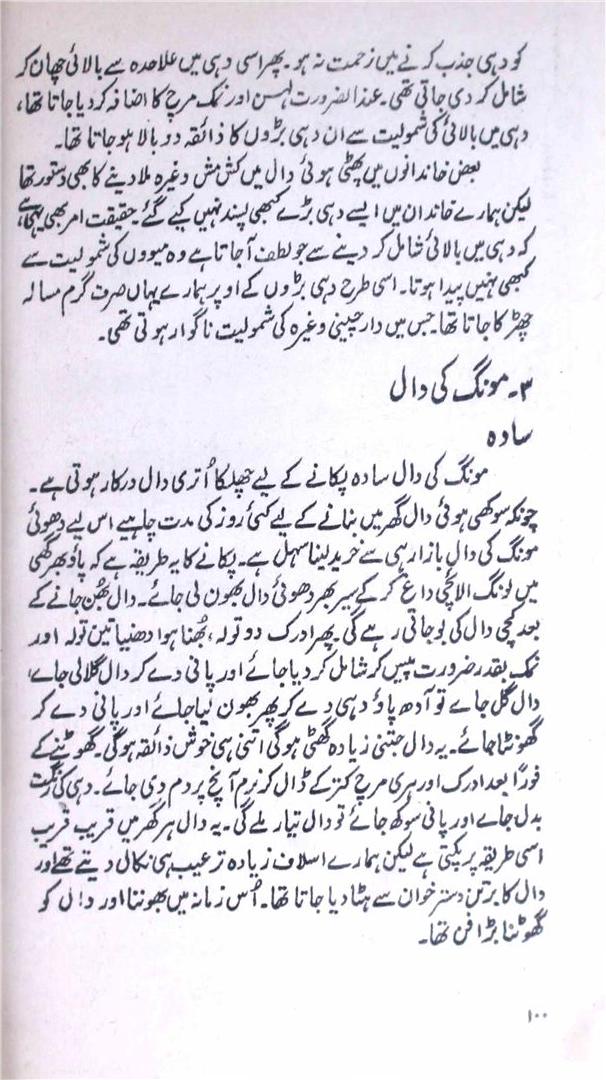 کو دہی جذب کرنے میں زحمت نہ ہو۔ پھر اسی دہی میں علاحدہ سے بالائی چھان کر
شامل کر دی جاتی تھی۔ عند الضرورت لہسن اور نمک مرچ کا اضافہ کر دیا جاتا تھا،
دہی میں بالائی کی شمولیت سے ان دہی بڑوں کا ذائقہ دوبالا ہو جاتا تھا۔
بعض خاندانوں میں پھٹی ہوئی دال میں کش مش وغیرہ ملا دینے کا بھی دستور تھا
لیکن ہمارے خاندان میں ایسے دہی بڑے کبھی پسند نہیں کیے گئے۔ حقیقت امر بھی یہی ہے
کہ دہی میں بالائی شامل کر دینے سے جو لطف آجاتا ہے وہ میووں کی شمولیت سے
کبھی نہیں پیدا ہوتا۔ اسی طرح دہی بڑوں کے اوپر ہمارے یہاں صرف گرم مسالہ
چھڑکا جاتا تھا۔ جس میں دار چینی وغیرہ کی شمولیت ناگوار ہوتی تھی۔
۳۔ مونگ کی دال
سادہ
مونگ کی دال سادہ پکانے کے لیے چھلکا اُتری دال درکار ہوتی ہے۔
چونکہ سوکھی ہوئی دال گھر میں بنانے کے لیے کئی روز کی مدت چاہیے اس لیے دھوئی
مونگ کی دال بازار ہی سے خرید لینا سہل ہے۔ پکانے کا یہ طریقہ ہے کہ پاؤ بھر گھی
میں لونگ الائچی داغ کر کے سیر بھر دھوئی دال بھون لی جائے۔ دال بھُن جانے کے
بعد کچی دال کی بو جاتی رہے گی۔ پھر ادرک دو تولہ، بھُنا ہوا دھنیا تین تولہ اور
نمک بقدر ضرورت پیس کر شامل کر دیا جائے اور پانی دے کر دال گلالی جاے،
دال گل جاے تو آدھ پاؤ دہی دے کر پھر بھون لیا جائے اور پانی دے کر
گھونٹا جائے۔ یہ دال جتنی زیادہ گھٹی ہوگی اتنی ہی خوش ذائقہ ہوگی۔ گھوٹنے کے
فوراً بعد ادرک اور ہری مرچ کتر کے ڈال کر نرم آنچ پر دم دی جائے۔ دہی کی رنگت
بدل جاے اور پانی سوکھ جائے تو دال تیار ملے گی۔ یہ دال ہر گھر میں قریب قریب
اسی طریقہ پر پکتی ہے لیکن ہمارے اسلاف زیادہ تر عیب ہی نکال دیتے تھے اور
دال کا برتن دسترخوان سے ہٹا دیا جاتا تھا۔ اُس زمانہ میں بھوننا اور دال کو
گھوٹنا بڑا فن تھا۔
۱۰۰